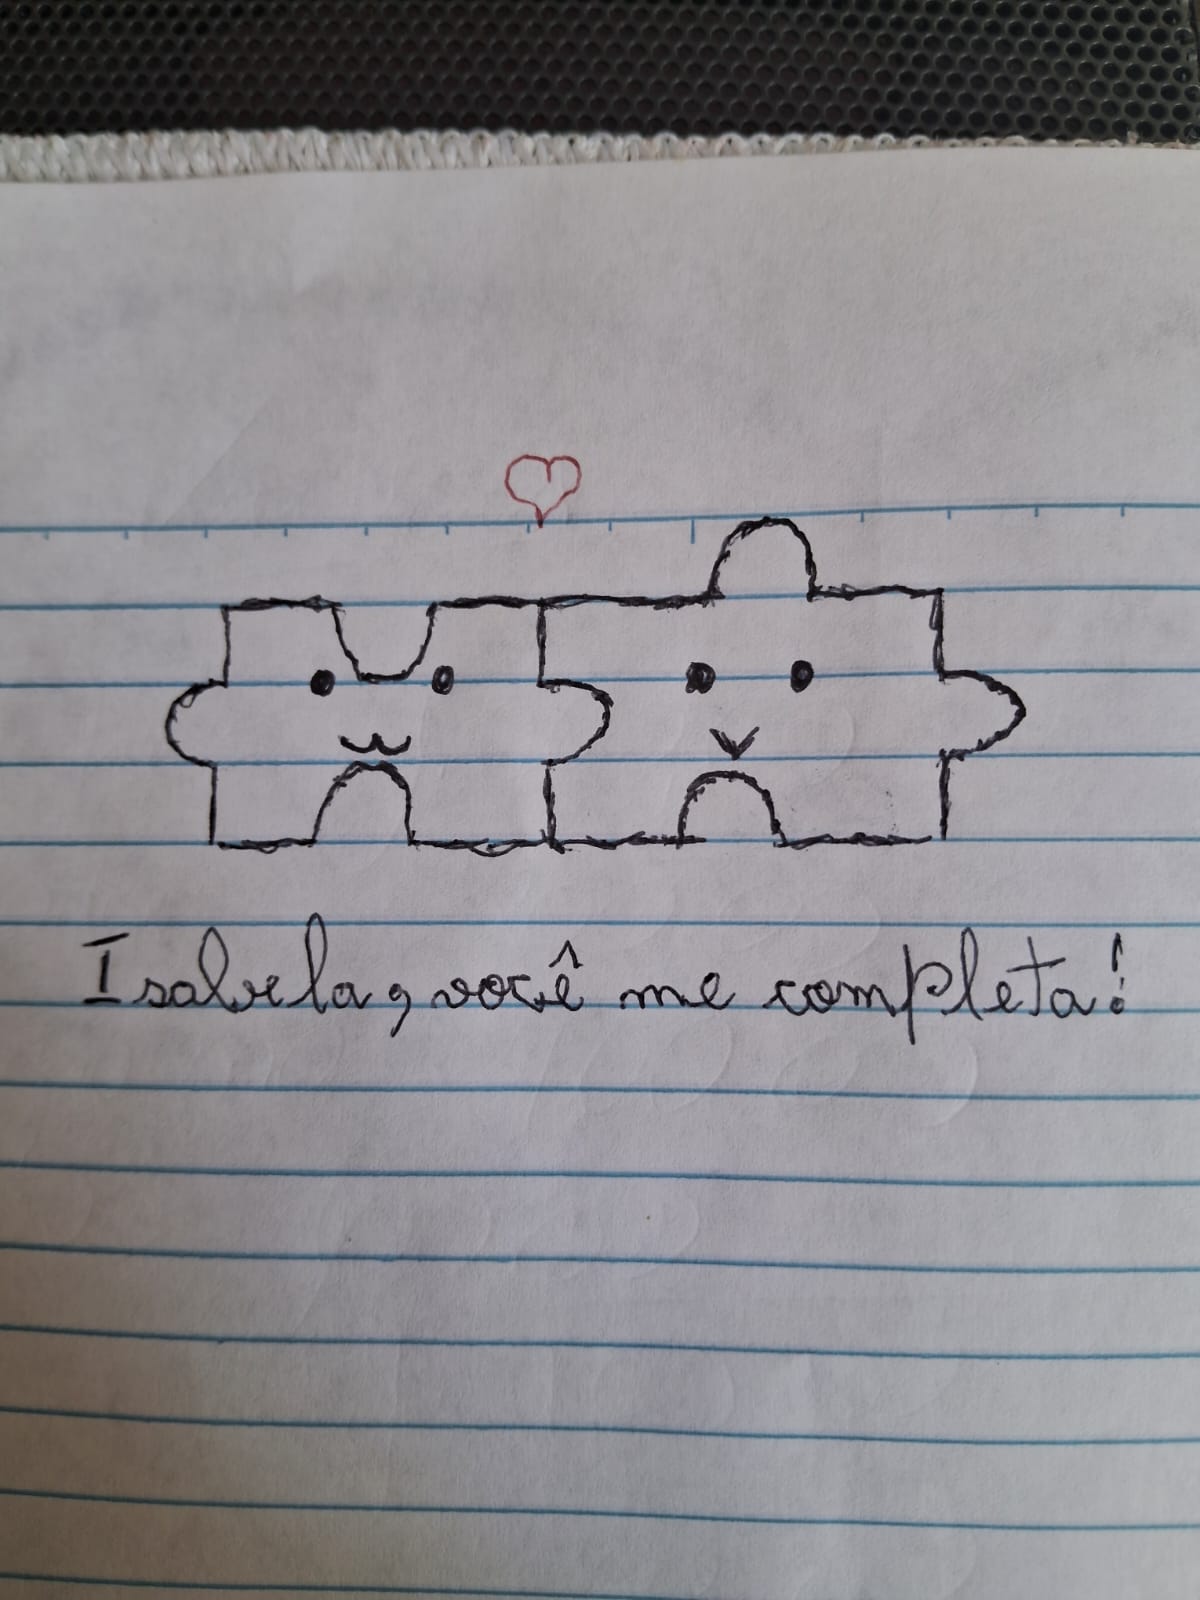 Isabela, você me completa!